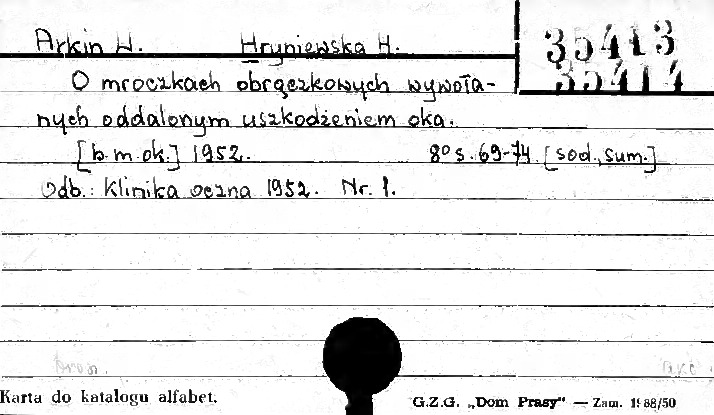 Arkin W. Hryniewska H.
35413
35414
O mroczkach obrączkowych wywoła-
nych oddalonym uszkodzeniem oka.
[b.m.ok.] 1952. 8° s. 69-74 [sod., sum.]
Odb.: Klinika oczna 1952. Nr. 1.
Karta do katalogu alfabet.
G.Z.G. „Dom Prasy" — Zam. 1988/50